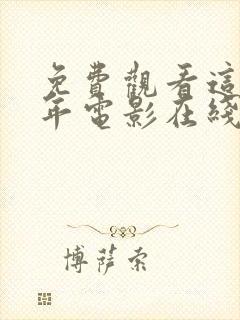 免費觀看這
年電影在綫
博薩索